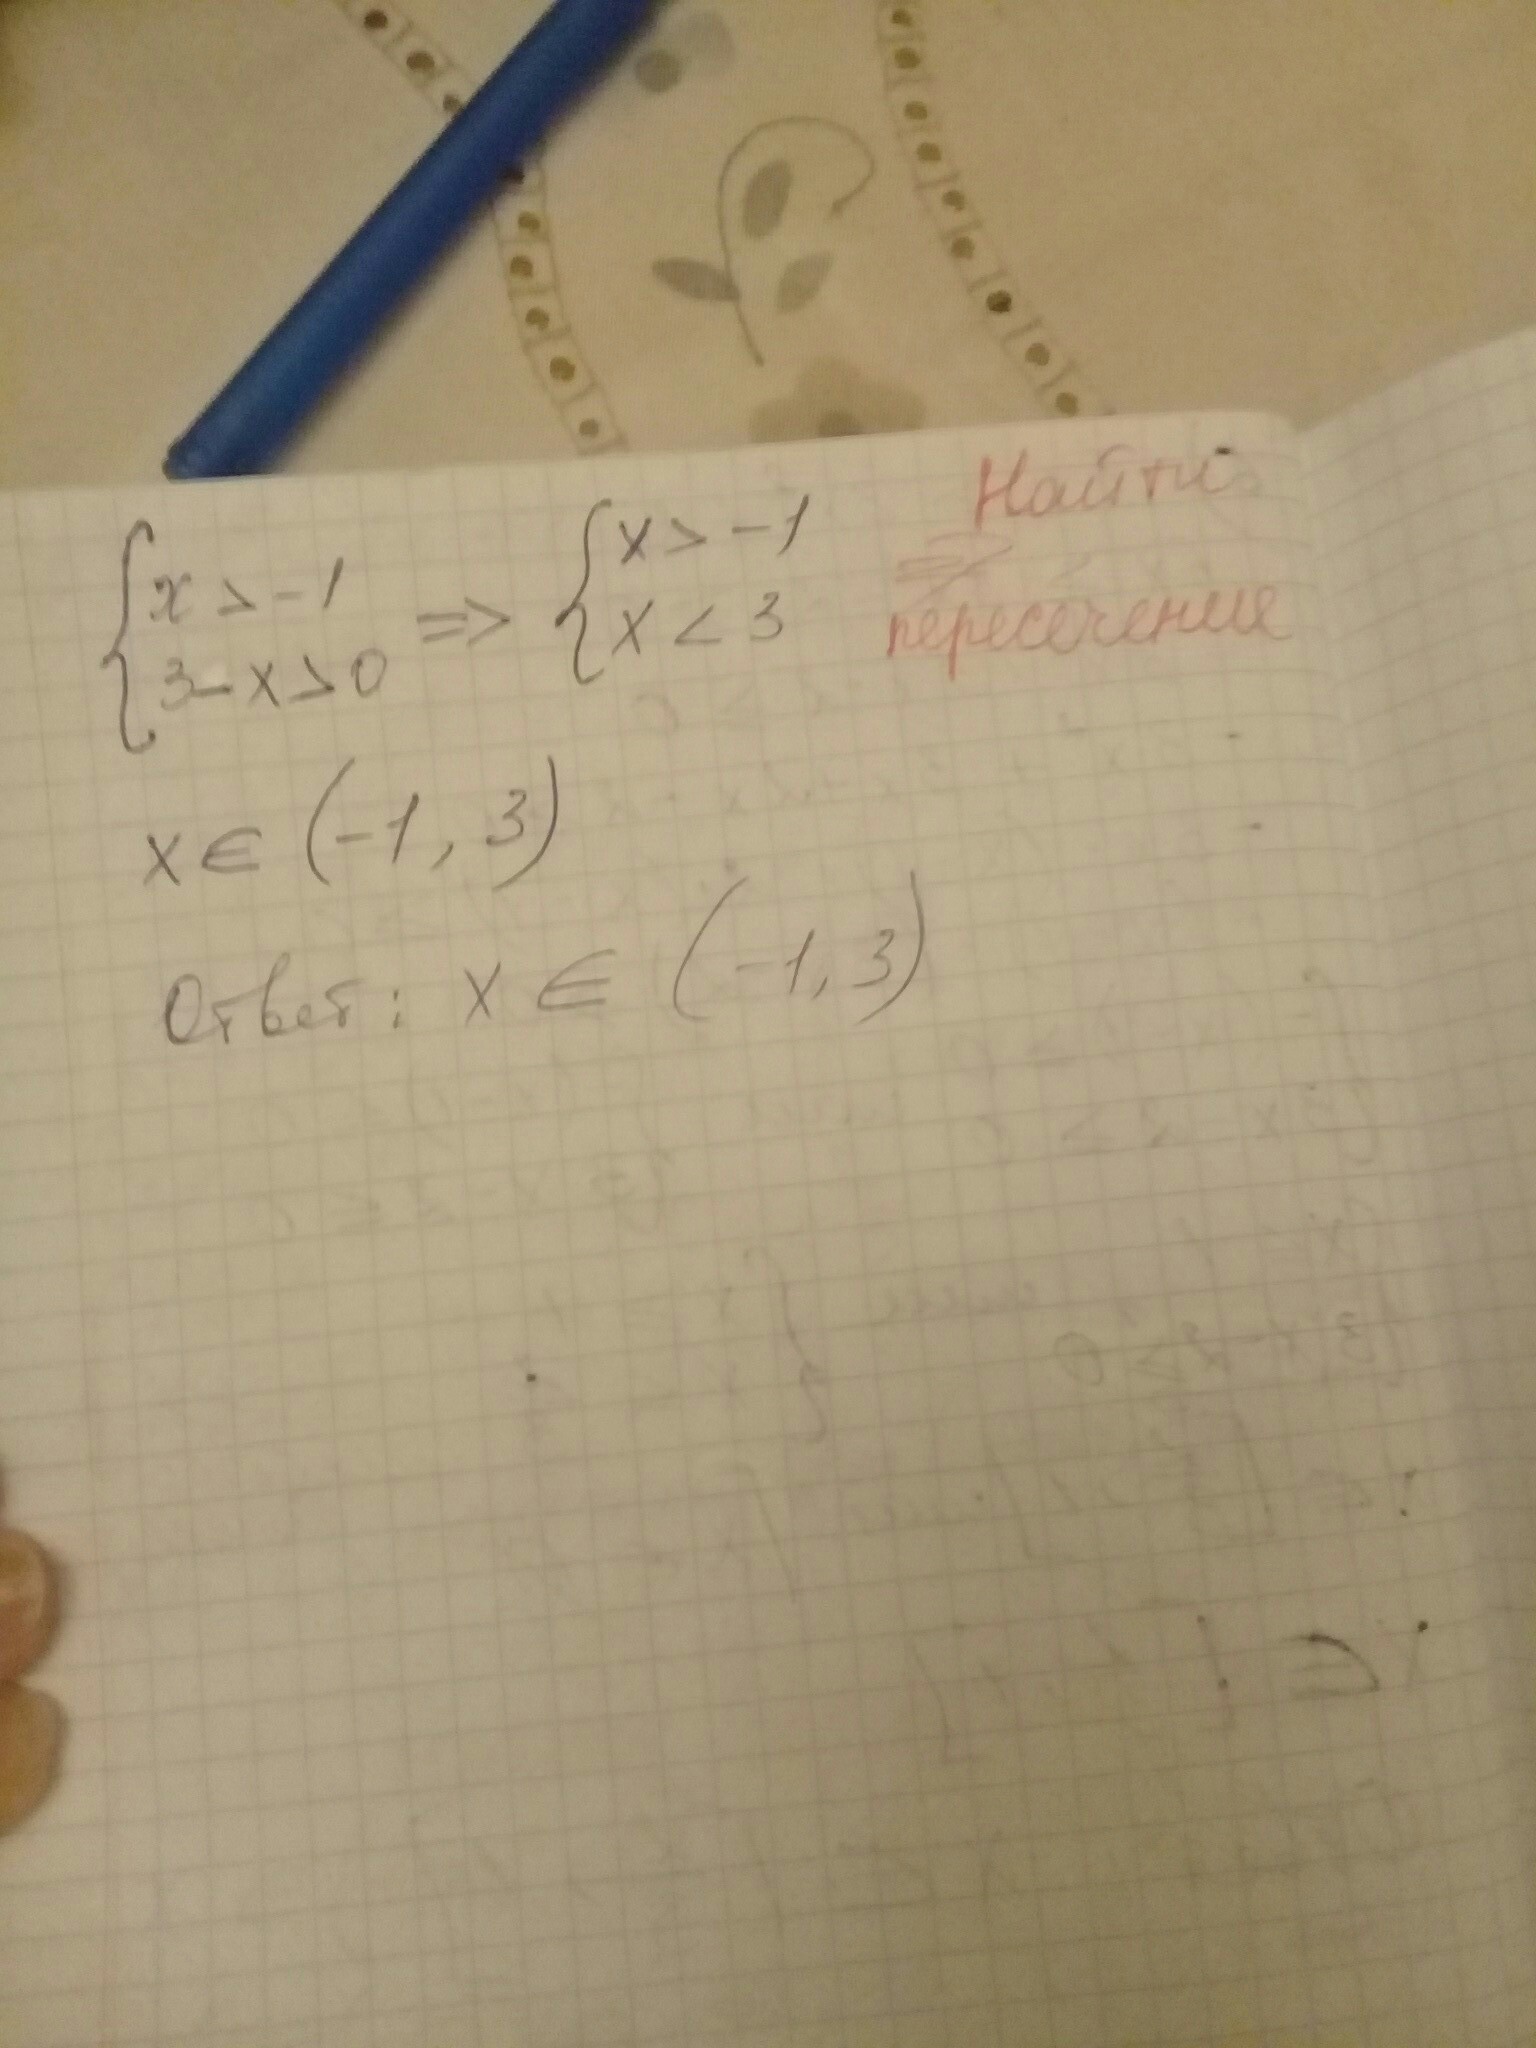 { x > -1
3 - x > 0
=> { x > -1
x < 3
Найти
=>
пересечения
x ∈ (-1, 3)
Ответ: x ∈ (-1, 3)